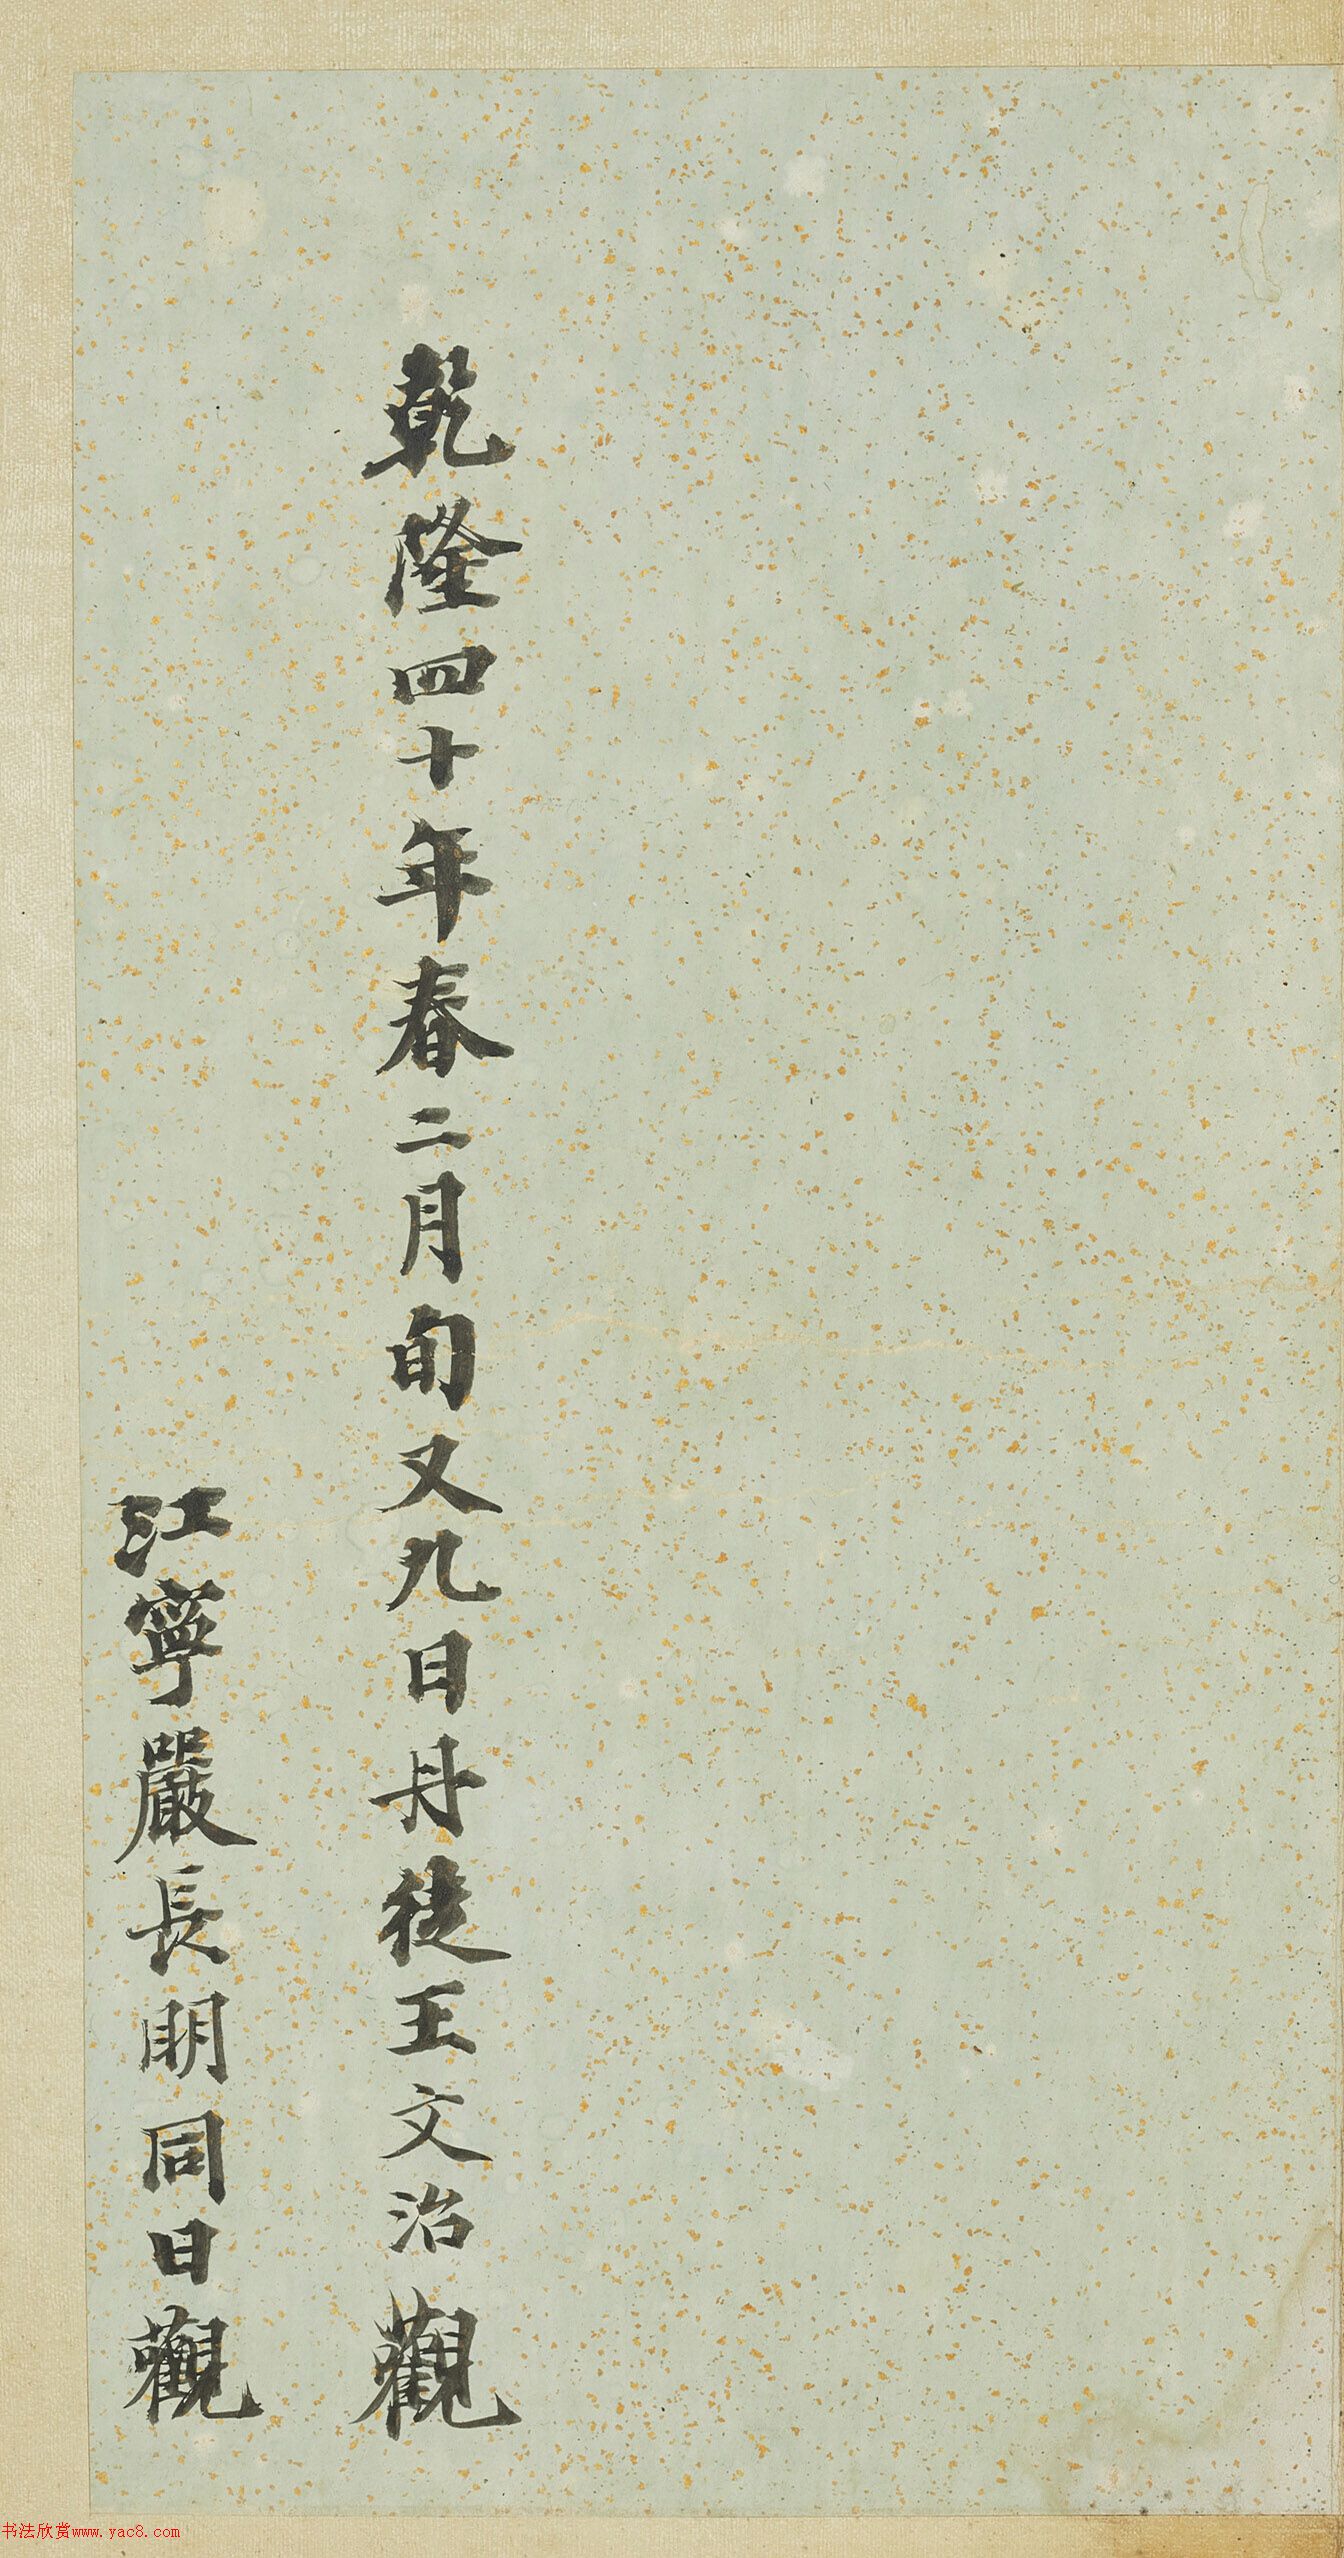 乾隆四十年春二月旬又九日丹徒王文治觀
江寧嚴長明同日觀
书法欣赏www.yac8.com